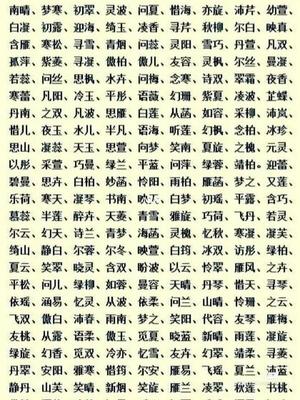 南晴、梦寒、初翠、灵波、问夏、惜海、亦旋、沛芹、幼萱
白凝、初露、迎海、绮玉、凌香、寻芹、秋柳、尔白、映真、
含雁、寒松、寻雪、青烟、问蕊、灵阳、雪巧、丹萱、凡双、
孤萍、紫菱、寻凝、傲柏、傲儿、友容、灵枫、尔丝、曼凝、
若蕊、问丝、思枫、水卉、问梅、念寒、诗双、翠霜、夜香、
寒蕾、凡阳、冷玉、平彤、语薇、幻珊、紫夏、凌波、芷蝶、
丹南、之双、凡波、思雁、白莲、从菡、如容、采柳、沛岚、
惜儿、夜玉、水儿、半凡、语海、听莲、幻枫、念柏、冰珍、
思山、凝蕊、天玉、思萱、向梦、笑南、夏旋、之槐、元灵、
以彤、采萱、巧曼、绿兰、平蓝、问萍、绿蓉、靖柏、迎蕾、
碧曼、思卉、白柏、妙菡、怜阳、雨柏、雁菡、梦之、又莲、
乐荷、寒天、凝琴、书南、映天、白梦、初瑶、平露、含巧、
慕蕊、半莲、醉卉、天菱、青雪、雅旋、巧荷、飞丹、若灵、
尔云、幻天、诗兰、青梦、海菡、灵槐、忆秋、寒凝、凝芙、
绮山、静白、尔蓉、尔冬、映萱、白筠、冰双、访彤、绿柏、
夏云、笑翠、晓灵、含双、盼波、以云、怜翠、雁风、之卉、
平松、问儿、绿柳、如蓉、曼容、天晴、丹琴、惜天、寻琴、
依瑶、涵易、忆灵、从波、依柔、问兰、山晴、怜珊、之云、
飞双、傲白、沛春、雨南、梦之、笑阳、代容、友琴、雁梅、
友桃、从露、语柔、傲玉、觅夏、晓蓝、新晴、雨莲、凝旋、
绿旋、幻香、觅双、冷亦、忆雪、友卉、幻翠、靖柔、寻菱、
丹翠、安阳、雅寒、惜筠、尔安、雁易、飞瑶、夏兰、沛蓝、
静丹、山芙、笑晴、新烟、笑旋、雁兰、凌翠、秋莲、书桃、